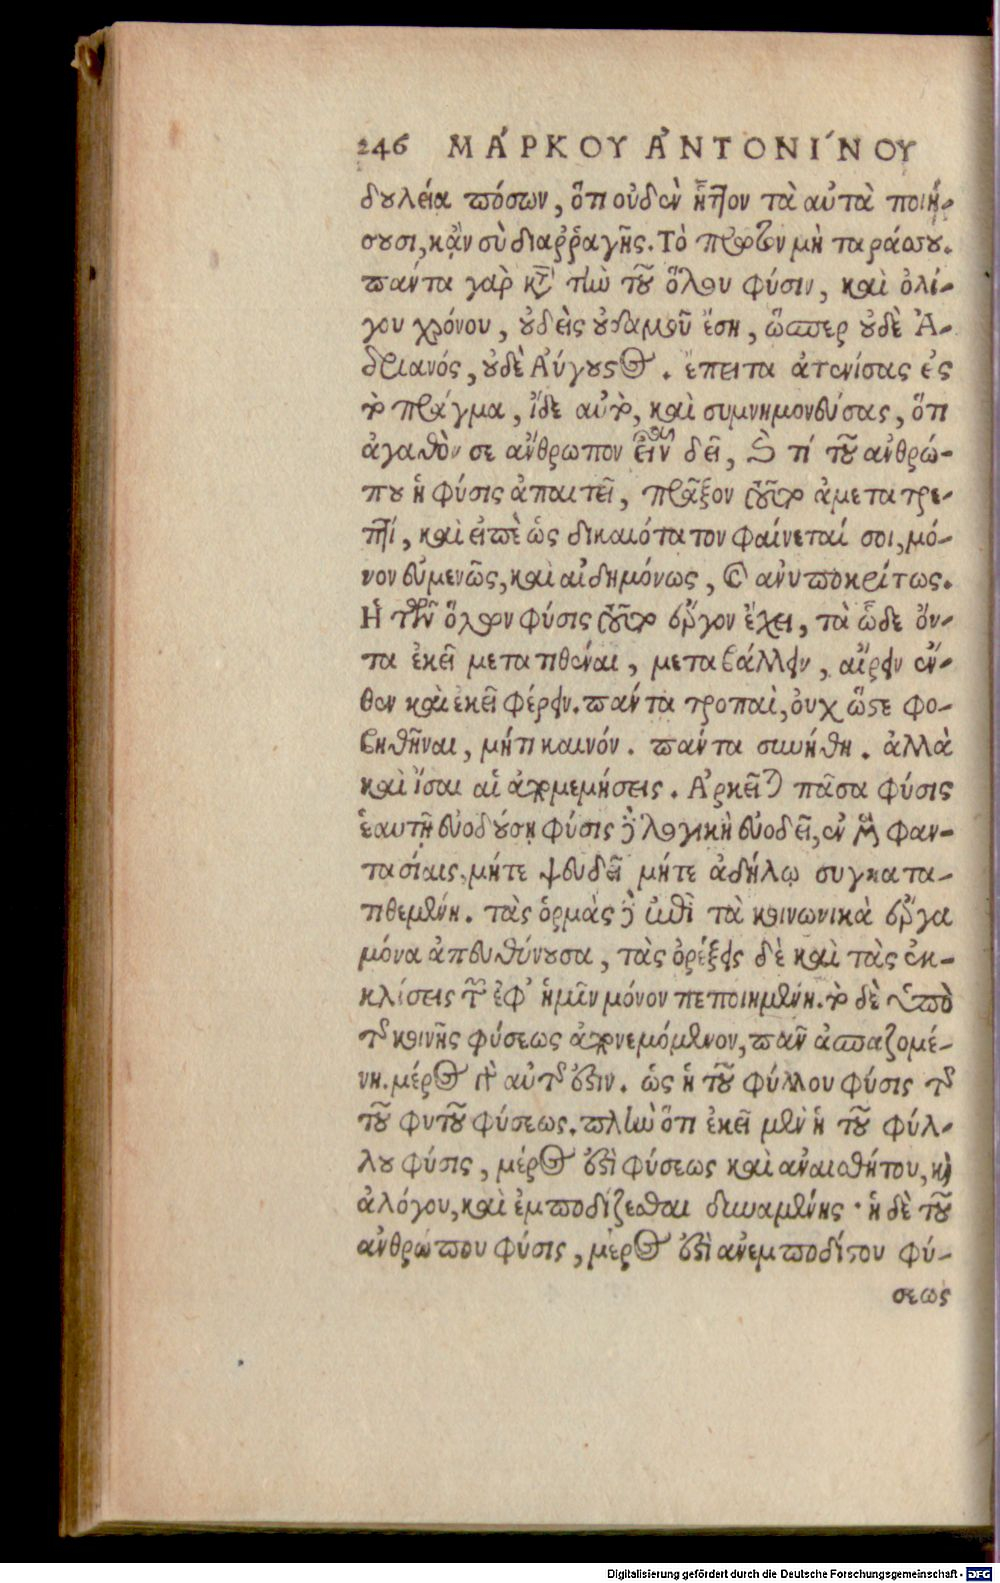 246 ΜΆΡΚΟΥ ἈΝΤΟΝΙ´ΝΟΥ
δουλεία πόσων, ὅτι οὐδὲν ἧττον τὰ αὐτὰ ποιή-
σουσι, κἂν σὺ διαῤῥαγῇς. Τὸ πρῶτον μὴ ταράσσου.
πάντα γὰρ κατὰ τὴν τοῦ ὅλου φύσιν, καὶ ὀλί-
γου χρόνου, οὐδεὶς οὐδαμοῦ ἔσῃ, ὥσπερ οὐδὲ Ἀ-
δριανός, οὐδὲ Αὔγουστος. ἔπειτα ἀτενίσας ἐς
τὸ πρᾶγμα, ἴδε αὐτό, καὶ συμνημονεύσας, ὅτι
ἀγαθὸν σε ἄνθρωπον εἶναι δεῖ, καὶ τί τοῦ ἀνθρώ-
που ἡ φύσις ἀπαιτεῖ, πρᾶξον τοῦτο ἀμετατρε-
πτί, καὶ εἰπὲ ὡς δικαιότατον φαίνεταί σοι, μό-
νον εὐμενῶς, καὶ αἰδημόνως, καὶ ἀνυποκρίτως.
Ἡ τῶν ὅλων φύσις τοῦτο ἔργον ἔχει, τὰ ὧδε ὄν-
τα ἐκεῖ μετατιθέναι, μεταβάλλειν, αἴρειν ἔν-
θεν καὶ ἐκεῖ φέρειν. πάντα τροπαὶ, οὐχ ὥστε φο-
βηθῆναι, μήτι καινόν. πάντα συνήθη. ἀλλὰ
καὶ ἴσαι αἱ ἀπονεμήσεις. Ἀρκεῖται πᾶσα φύσις
ἑαυτῇ εὐοδούσῃ φύσις δὲ λογικὴ εὐοδεῖ, ἐν μὲν φαν-
τασίαις, μήτε ψευδεῖ μήτε ἀδήλῳ συγκατα-
τιθεμένη. τὰς ὁρμὰς δὲ ἐπὶ τὰ κοινωνικὰ ἔργα
μόνα ἀπευθύνουσα, τὰς ὀρέξεις δὲ καὶ τὰς ἐκ-
κλίσεις τῶν ἐφ' ἡμῖν μόνον πεποιημένη. τὸ δὲ ὑπὸ
τῆς κοινῆς φύσεως ἀπονεμόμενον, πᾶν ἀσπαζομέ-
νη. μέρος γὰρ αὐτῆς ἐστιν. ὡς ἡ τοῦ φύλλου φύσις τῆς
τοῦ φυτοῦ φύσεως. πλὴν ὅτι ἐκεῖ μὲν ἡ τοῦ φύλ-
λου φύσις, μέρος ἐστὶ φύσεως καὶ ἀναισθήτου, καὶ
ἀλόγου, καὶ ἐμποδίζεσθαι δυναμένης · ἡ δὲ τοῦ
ἀνθρώπου φύσις, μέρος ἐστὶ ἀνεμποδίστου φύ-
σεως
Digitalisierung gefördert durch die Deutsche Forschungsgemeinschaft - DFG